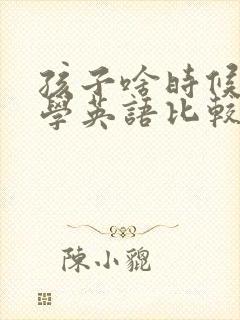 孩子啥時候
學英語比較
陳小貔